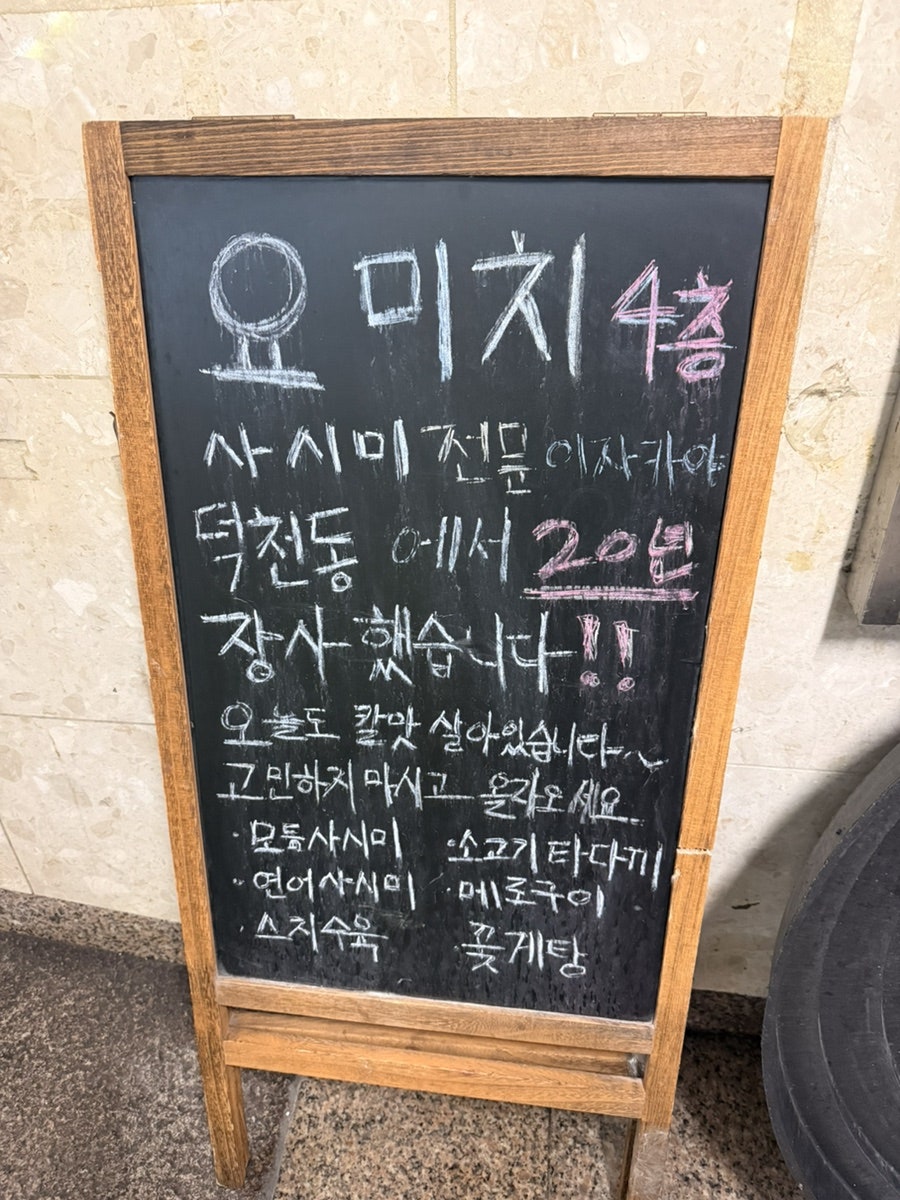 요미치 4층
사시미 전문 이자카야
덕천동 에서 20년
장사했습니다!!
오늘도 칼맛 살아있습니다~
고민하지 마시고 올라오세요
· 모듬사시미 · 소고기타다끼
· 연어사시미 · 메로구이
· 스지수육 · 꽃게탕